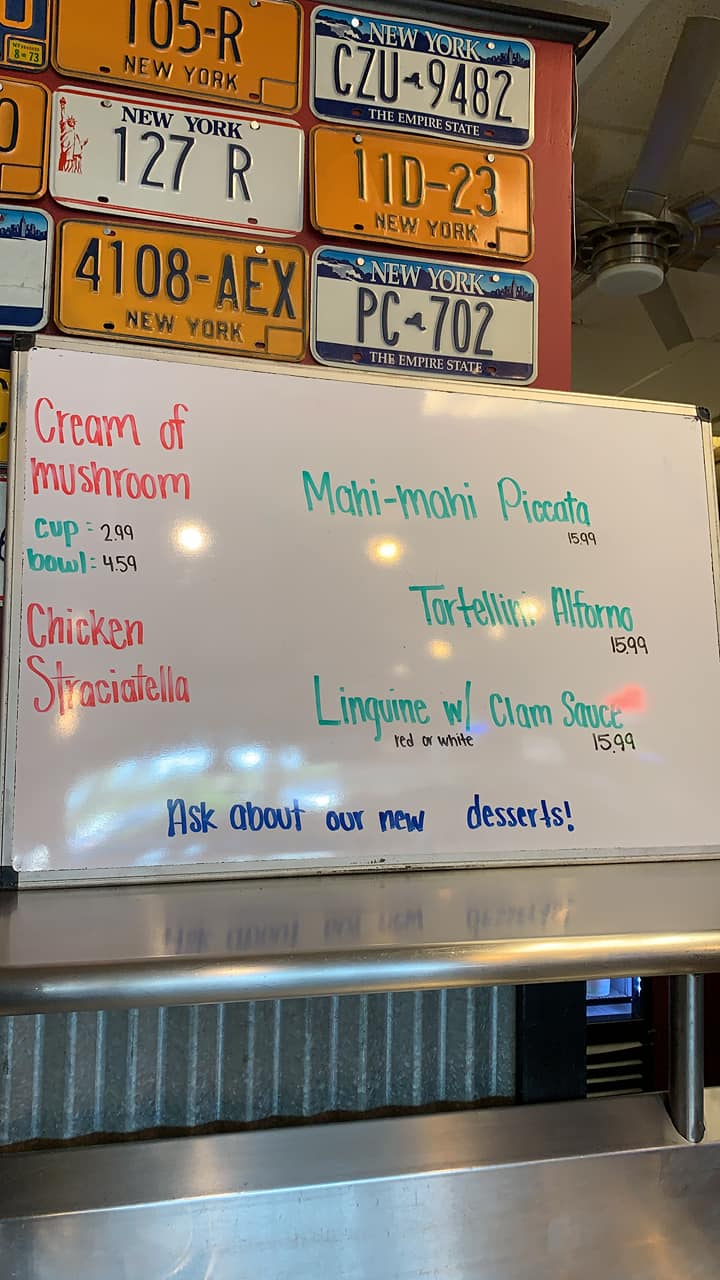 105-R
NEW YORK
8 73
NEW YORK
CZU 9482
THE EMPIRE STATE
NEW YORK
127 R
11D-23
NEW YORK
4108-AEX
NEW YORK
NEW YORK
PC 702
THE EMPIRE STATE
Cream of
mushroom
cup: 2.99
bowl: 4.59
Chicken
Straciatella
Mahi-mahi Piccata
15.99
Tortellini Alforno
15.99
Linguine w/ Clam Sauce
red or white
15.99
Ask about our new desserts!